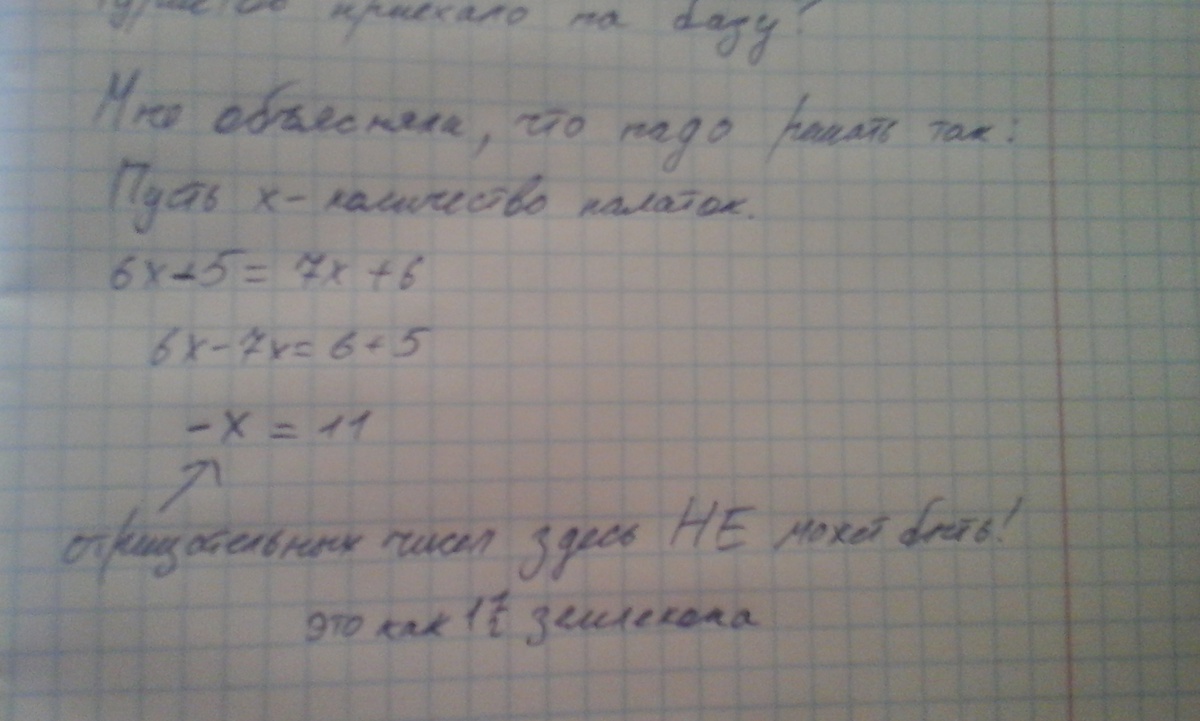 приехало на базу?
Мне объясняли, что надо решать так:
Пусть x - количество палаток.
6x+5 = 7x+6
6x-7x= 6+5
-x = 11
отрицательных чисел здесь НЕ может быть!
это как землекопа